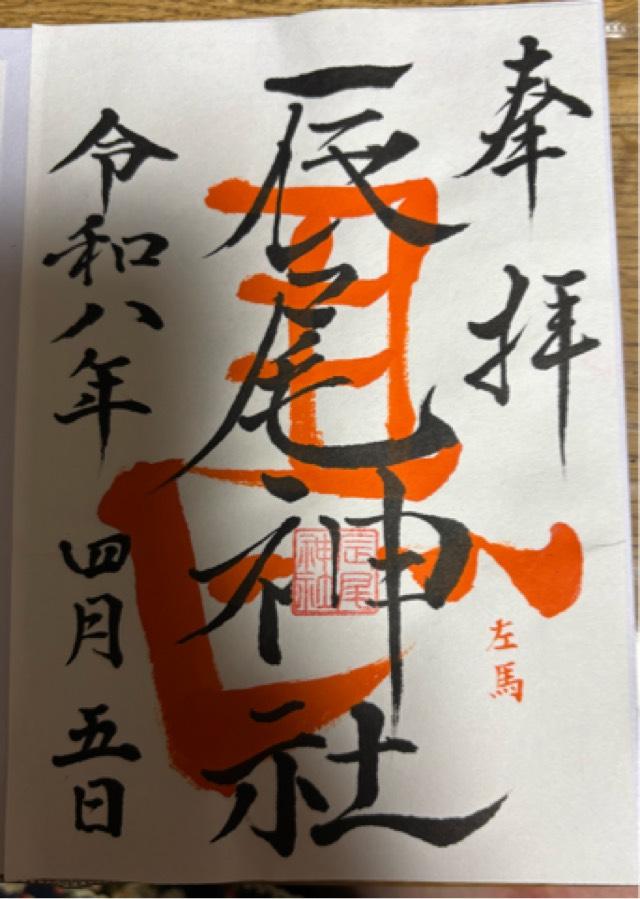 奉拝
辰尾神社
辰尾
神社
左馬
令和八年 四月 五日